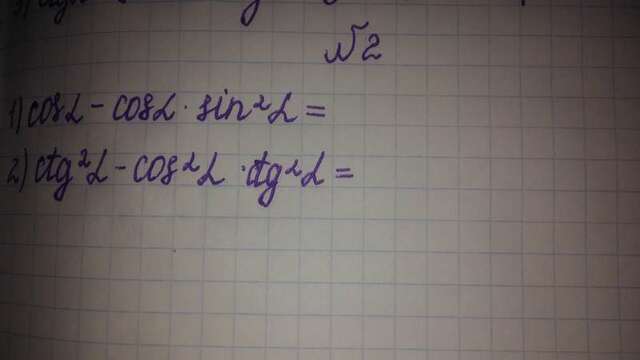 №2
1) cosα - cosα · sin²α =
2) ctg²α - cos²α · ctg²α =